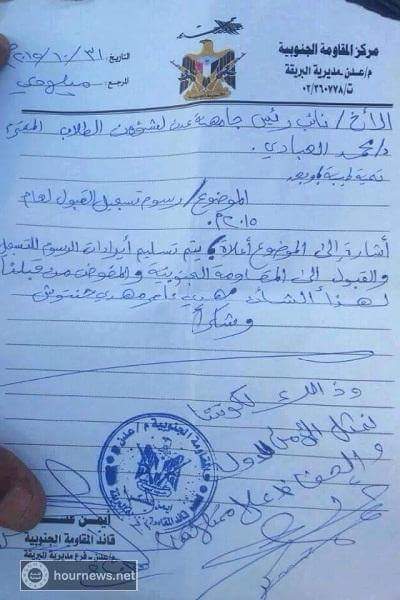 مركز المقاومة الجنوبية
م/عدن - مديرية البريقة
ت/ ٠٢/٣٦٠٧٧٨
التاريخ: ٣١/١٠/٢٠١٥م
المرجع:
الأخ/ نائب رئيس جامعة عدن لشؤون الطلاب المحترم
د/محمد العبادي.
تحية طيبة وبعد
الموضوع/ رسوم تسجيل القبول لعام
٢٠١٥م.
أشارة إلى الموضوع أعلاه يتم تسليم أيرادات الرسوم للتسجيل
والقبول إلى المقاومة الجنوبية والمفوض من قبلنا
لهذا الشأن مهدي
وشكراً
وذالك لكوننا
نمثل الأمن الأول
والحفاظ على
المقاومة الجنوبية م/عدن
أيمن
قائد المقاومة الجنوبية
م/عدن - فرع مديرية البريقة
hournews.net